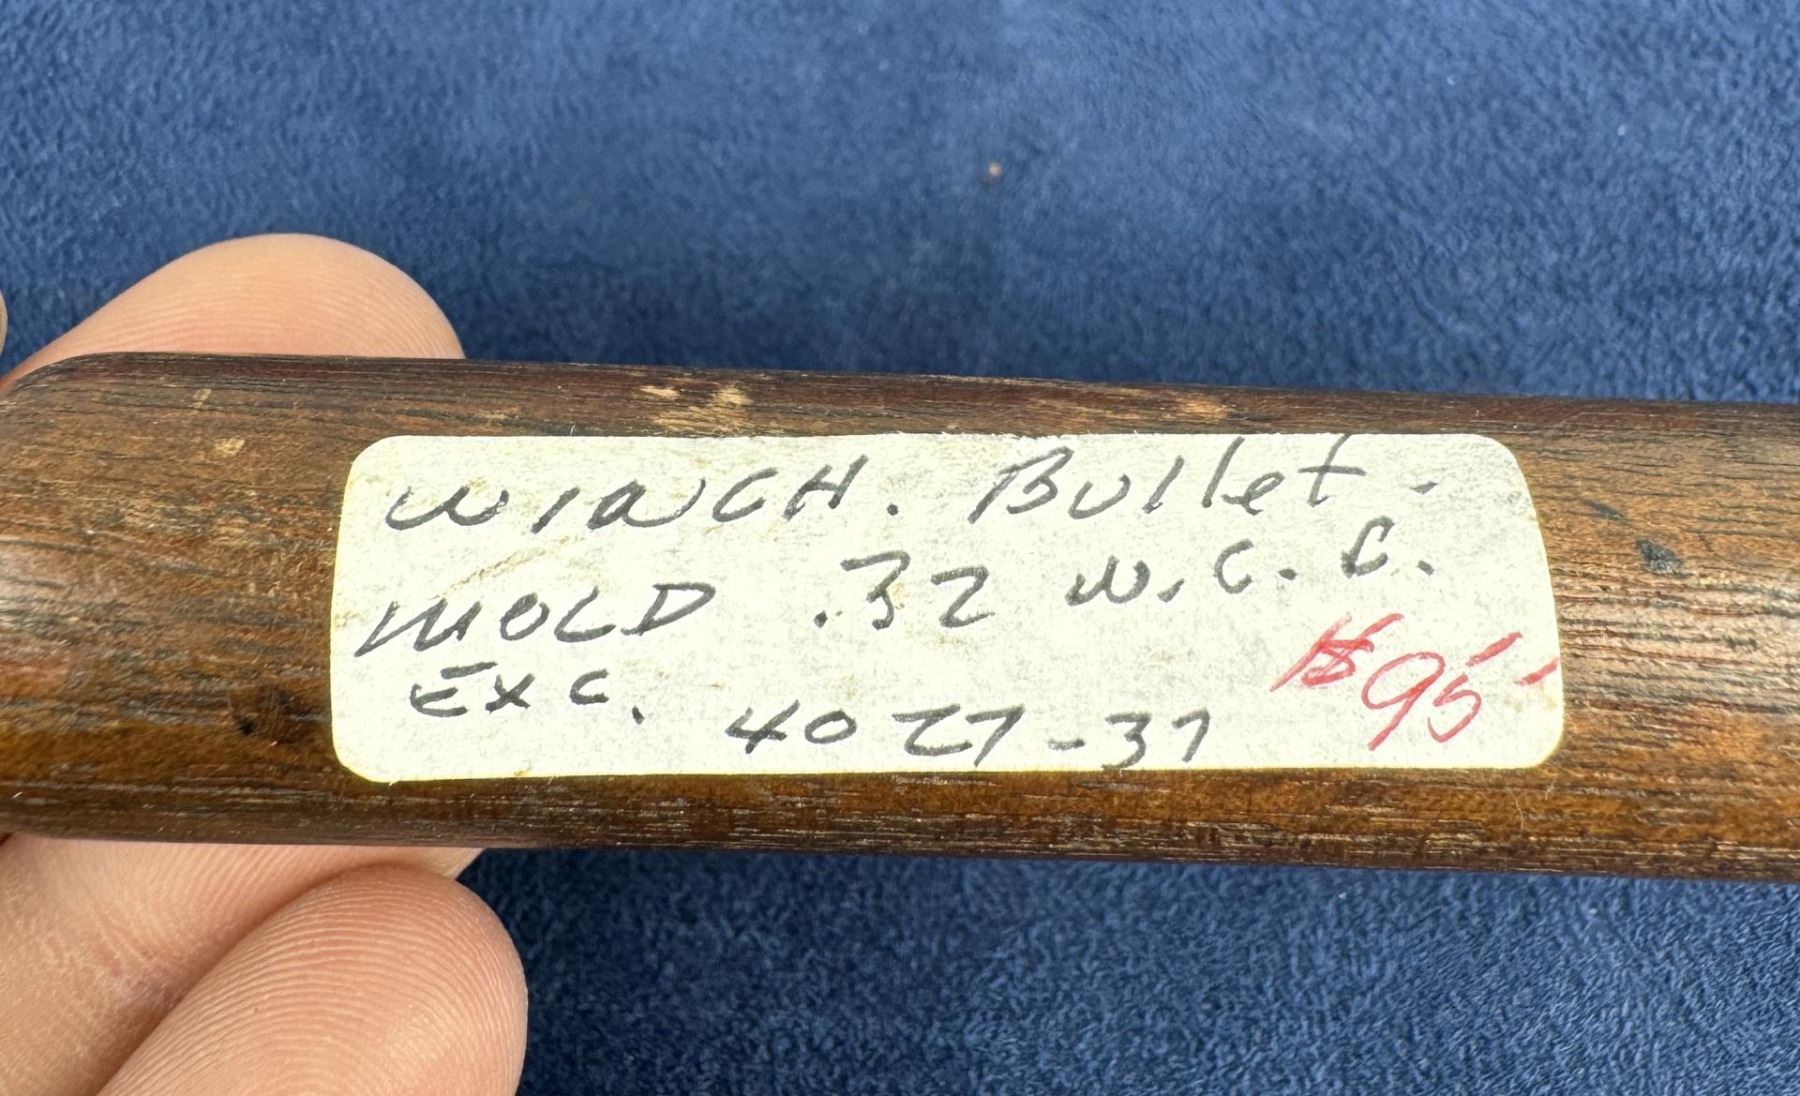 WINCH. Bullet -
MOLD .32 W.C.C.
EXC.
4027-37
$95-